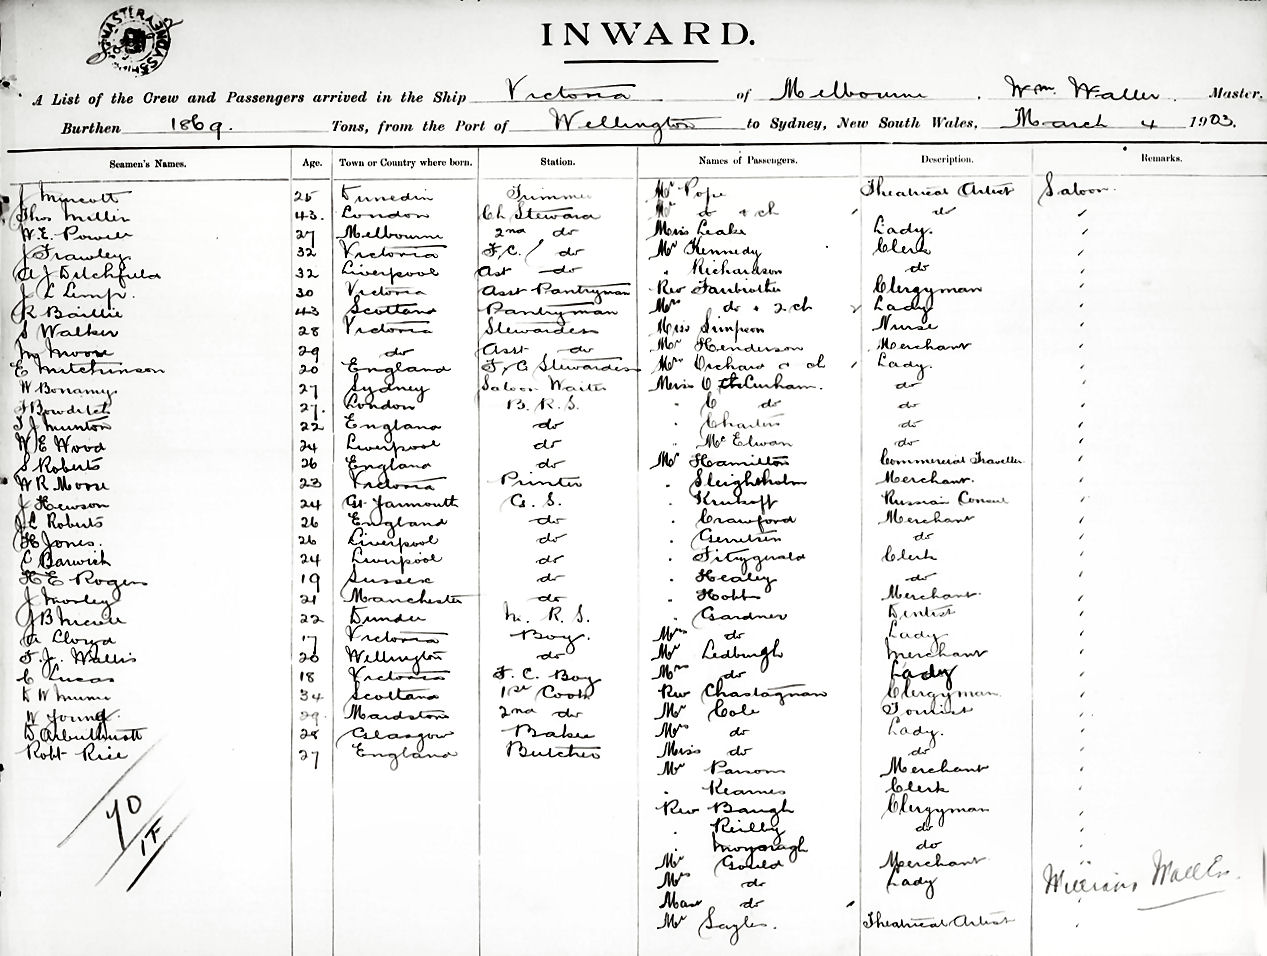 INWARD.
A List of the Crew and Passengers arrived in the Ship Victoria of Melbourne, Wm. Waller, Master.
Burthen 1869. Tons, from the Port of Wellington to Sydney, New South Wales, March 4 1903.
Seamen's Names. Age. Town or Country where born. Station. Names of Passengers. Description. Remarks.
J Murcott 25 Dunedin Trimmer Mr Pope Theatrical Artist Saloon
Thos Miller 43. London Ch Steward Mrs do & ch do "
W.E. Power 27 Melbourne 2nd do Miss Leake Lady. "
J Frawley 32 Victoria F.C. do Mr Kennedy Clerk "
A J Ditchfield 32 Liverpool Ast do " Richardson do "
J L 30 Victoria Asst Pantryman Rev Fairbrother Clergyman "
R Baillie 43 Scotland Pantryman Mrs do & 2 ch Lady "
S Walker 28 Victoria Stewardess Miss Simpson Nurse "
M Moore 29 do Asst do Mr Henderson Merchant "
E Hutchinson 20 England F.C Stewardess Mrs Orchard & ch Lady. "
W Bonamy. 27 Sydney Saloon Waiter Miss O do "
J Bowditch 27. London B. R. S. " C do do "
T J Munton 22 England do " do "
W E Wood 24 Liverpool do " McElwan do "
S Roberts 26 England do Mr Hamilton Commercial Traveller "
W R Moore 23 Victoria Printer " Sleighholm Merchant. "
J Hewson 24 Gt Yarmouth G. S. " Russian Consul "
J L Roberts 26 England do " Crawford Merchant "
H Jones. 26 Liverpool do " Gerritsen do "
C Barwick 24 Liverpool do " Fitzgerald Clerk "
H E Rogers 19 Sussex do " Healey do "
J Morley 21 Manchester do " Hobbs Merchant. "
J B 22 Dundee M. R. S. " Gardner Dentist "
A Lloyd 17 Victoria Boy. Mrs do Lady "
F. J. Wallis 20 Wellington do Mr Ledburgh Merchant "
C Lucas 18 Victoria F. C. Boy Mrs do Lady "
D W 34 Scotland 1st Cook Rev Chastagnan Clergyman "
W Young. 29. Maidstone 2nd do Mr Cole Tourist "
D Arbuthnott 28 Glasgow Baker Mrs do Lady. "
Robt Rice 27 England Butcher Miss do do "
Mr Parsons Merchant "
" Kearnes Clerk "
Rev Baugh Clergyman "
" Reilly do "
" do "
70
17
Mr Gould Merchant "
Mrs do Lady
William Waller
Mast do
Mr Sayles. Theatrical Artist "